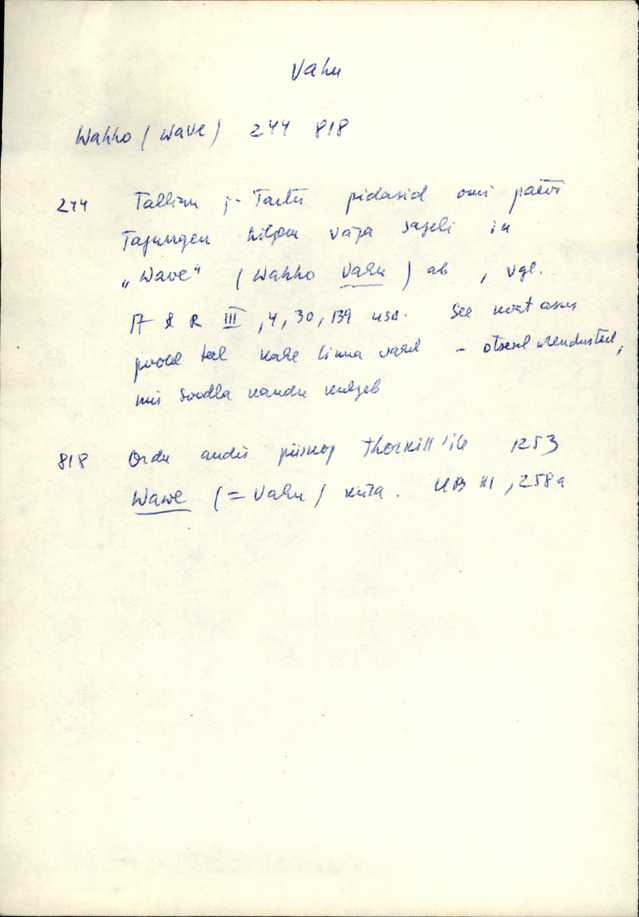 Vahu
Wahho (Wave) 244 818
244 Tallinn j- Tartu pidasid omi päevi
Tagungen hiljem väga sageli in
„Wave" (Wahho Vahu) ab, vgl.
R III, 4, 30, 139 usw. See koht asus
poole teel kahe linna vahel - otsesel ühendusteel,
mis Soodla kaudu kulgeb
818 Ordu andis piiskop Thorkill'ile 1253
Wawe (= Vahu) küla. UB III, 258a